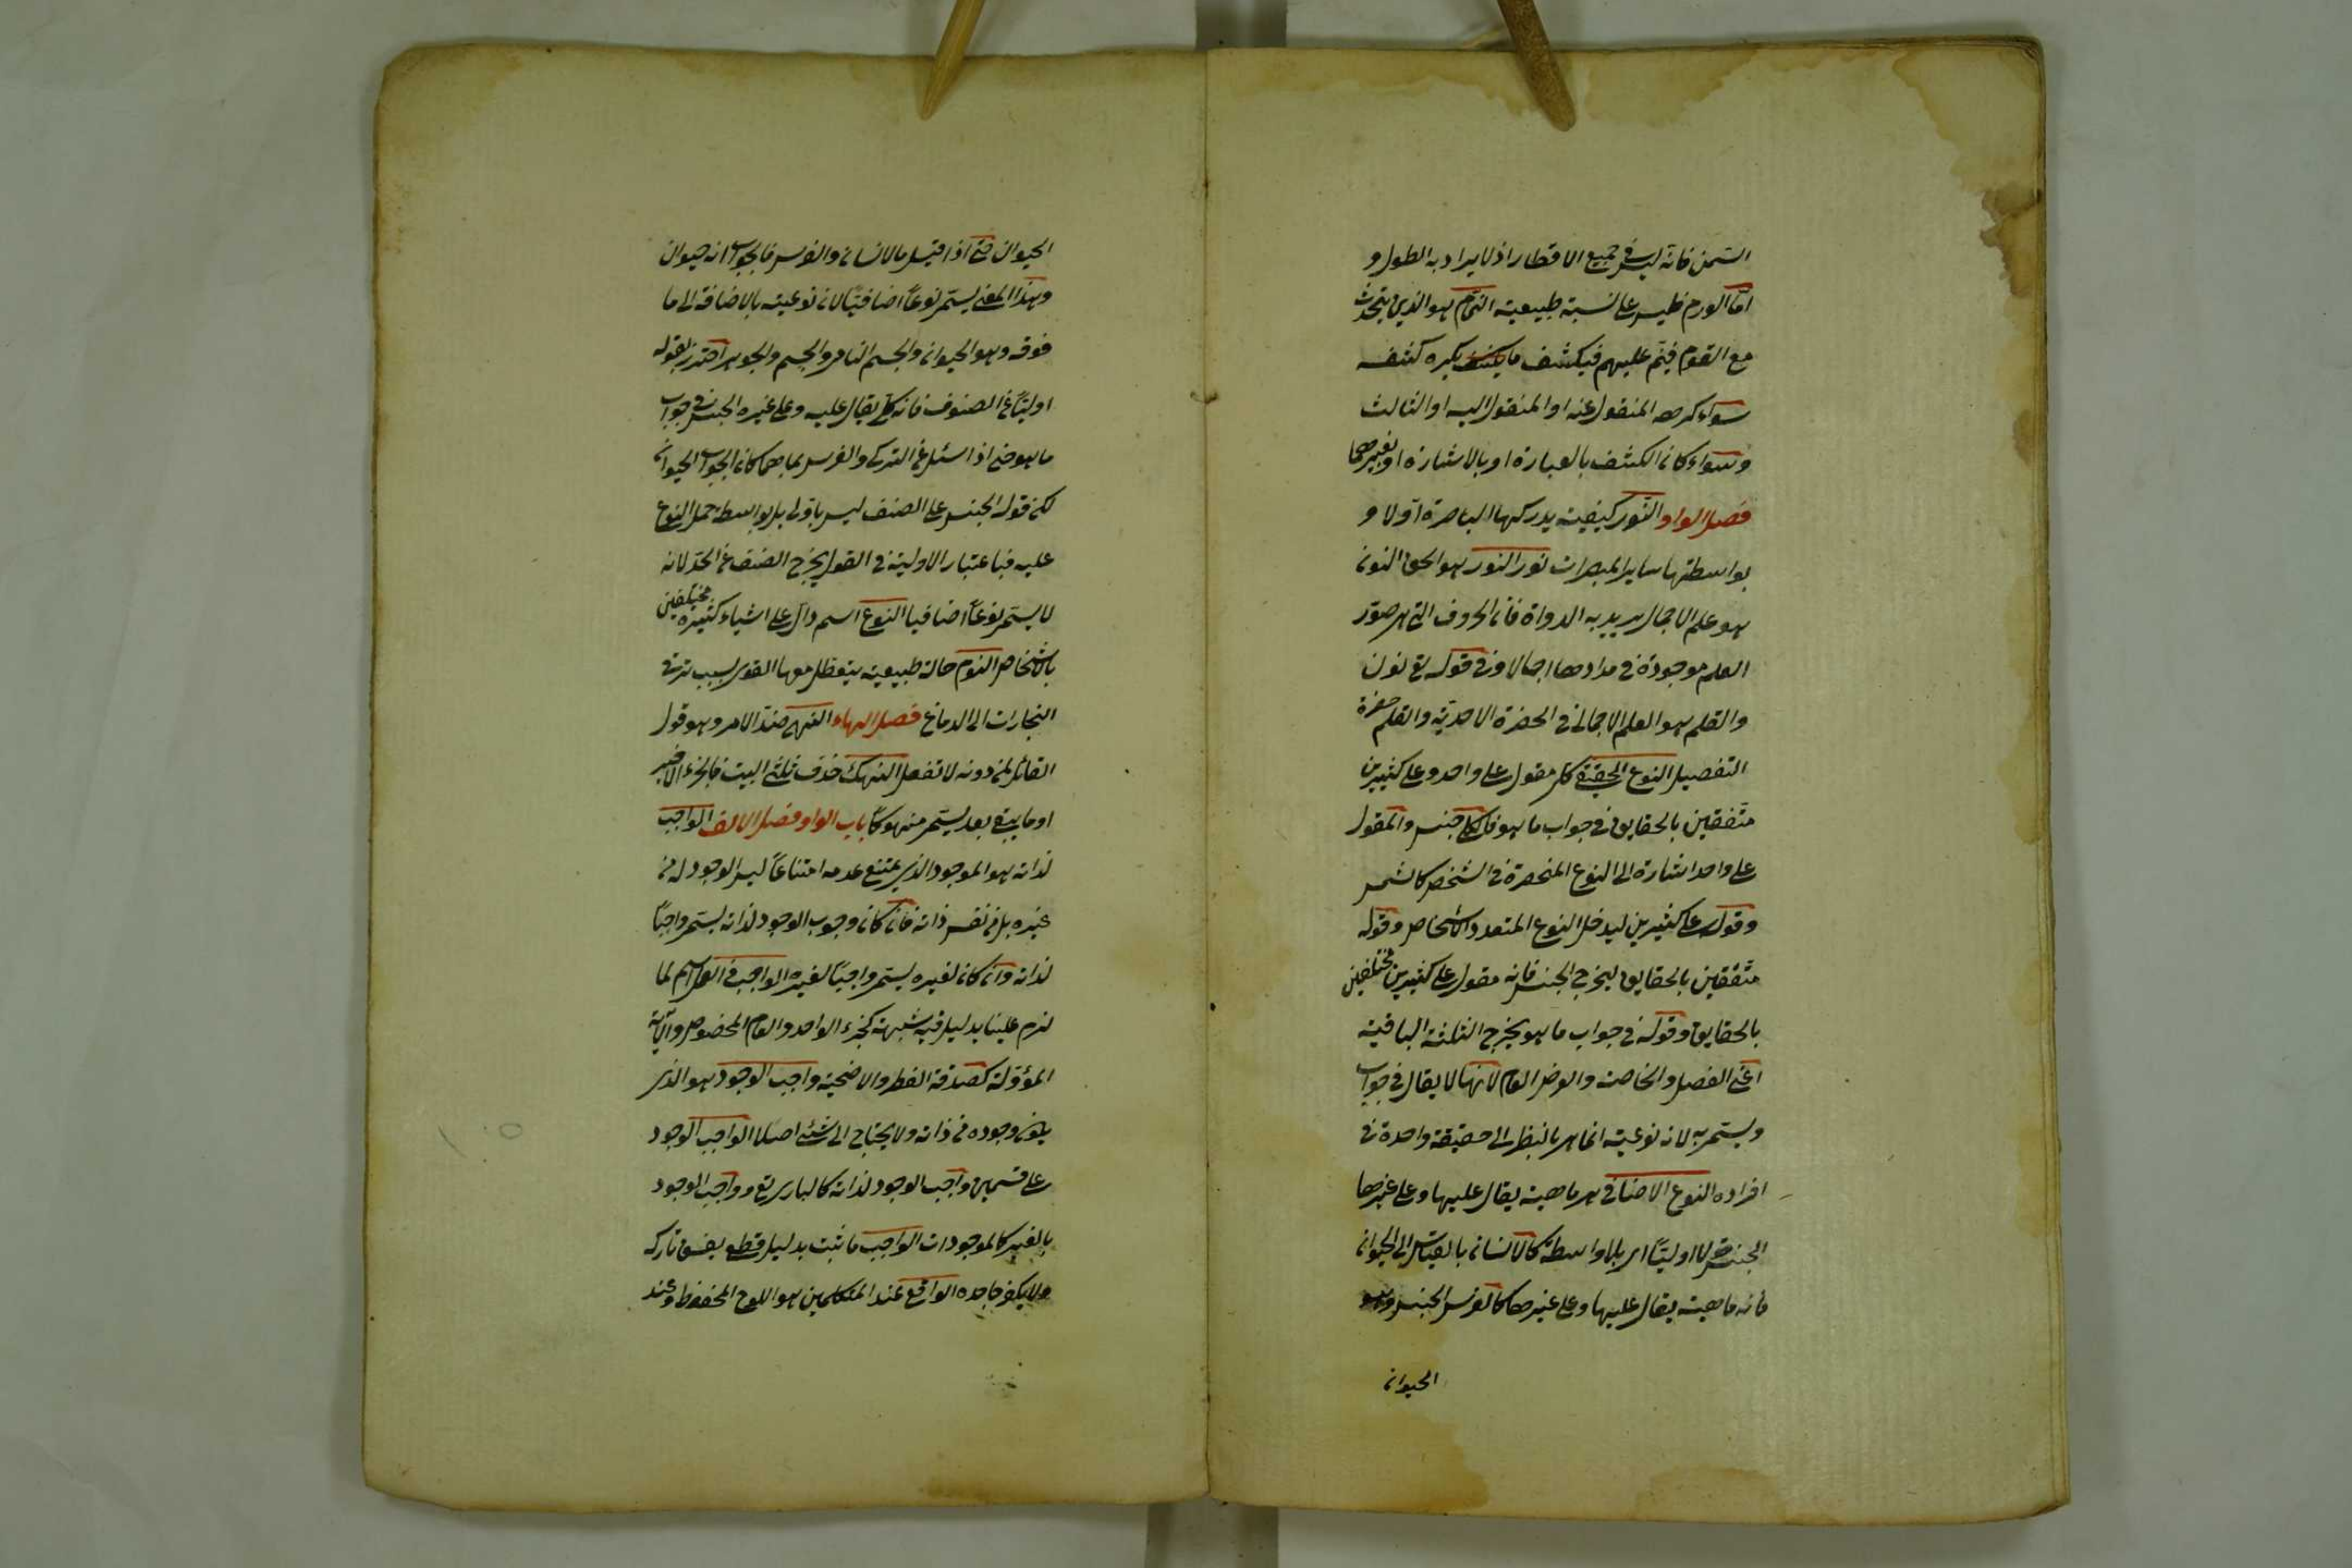 السّمن فانّه ليس في جميع الاقطار اذ لا يراد به الطول و
امّا الورم فليس على نسبة طبيعية النمّام هو الذي يتحدّث
مع القوم فينمّ عليهم فيكشف ما يكره كشفه
سواء كرهه المنقول عنه او المنقول اليه او الثالث
وسواء كان الكشف بالعبارة او بالاشارة او بغيرهما
فصل الواو النّور كيفية يدركها الباصرة اولا و
بواسطتها ساير المبصرات نور النور هو الحق النون
هو علم الاجمال يريد به الدواة فان الحروف التي هي صور
العلم موجودة في مدادها اجمالا وفي قوله تع نون
والقلم هو العلم الاجمالي في الحضرة الاحديّة والقلم حضرة
التفصيل النوع الحقيقي كل مقول على واحد وعلى كثيرين
متّفقين بالحقايق في جواب ما هو فالكلي جنس والمقول
على واحد اشارة الى النوع المنحصرة في الشخص كالشمس
وقوله على كثيرين ليدخل النوع المتعدد الاشخاص وقوله
متّفقين بالحقايق ليخرج الجنس فانه مقول على كثيرين مختلفين
بالحقايق وقوله في جواب ما هو يخرج الثلثة الباقية
اعني الفصل والخاصة والعرض العام لانها لا يقال في جواب
ويسمى به لان نوعيته انما هي بالنظر الى حقيقة واحدة في
افراده النوع الاضافي هي ماهية يقال عليها وعلى غيرها
الجنس قولا اوليّا اي بلا واسطة كالانسان بالقياس الى الحيوان
فانه ماهية يقال عليها وعلى غيرها كالفرس الجنس وهو
الحيوان
الحيوان حتى اذا قيل ما الانسان والفرس فالجواب انه حيوان
وهذا المعنى يسمى نوعاً اضافيّا لان نوعيته بالاضافة الى ما
فوقه وهو الحيوان والجسم النامي والجسم والجوهر احترز بقوله
اوليّا عن الصنف فانه كلي يقال عليه وعلى غيره الجنس في جواب
ما هو حتى اذا سئل عن التركي والفرس بما هما كان الجواب الحيوان
لكن قول الجنس على الصنف ليس باولى بل بواسطة حمل النوع
عليه فباعتبار الاولية في القول يخرج الصنف عن الحد لانه
لا يسمى نوعاً اضافيا النوع اسم دال على اشياء كثيرة مختلفين
بالاشخاص النوم حالة طبيعية يتعطل معها القوى بسبب ترقى
البخارات الى الدماغ فصل الهاء النهي ضدّ الامر وهو قول
القائل لمن دونه لا تفعل النهك حذف ثلثي البيت فالجزء الاخير
او ما يبقى بعد يسمى منهوكاً باب الواو فصل الالف الواجب
لذاته هو الموجود الذي يمتنع عدمه امتناعاً ليس الوجود له من
غيره بل من نفس ذاته فان كان وجوب الوجود لذاته يسمى واجباً
لذاته وان كان لغيره يسمى واجباً لغيره الواجب في العمل اسم لما
لزم علينا بدليل فيه شبهة كخبر الواحد والعام المخصوص والآية
المؤوّلة كصدقة الفطر والاضحية واجب الوجود هو الذي
يكون وجوده من ذاته ولا يحتاج الى شيء اصلا الواجب الوجود
على قسمين واجب الوجود لذاته كالباري تع وواجب الوجود
بالغير كالموجودات الواجب ما ثبت بدليل قطعي يفسق تاركه
ولا يكفر جاحده الواقع عند المتكلمين هو اللوح المحفوظ وعند